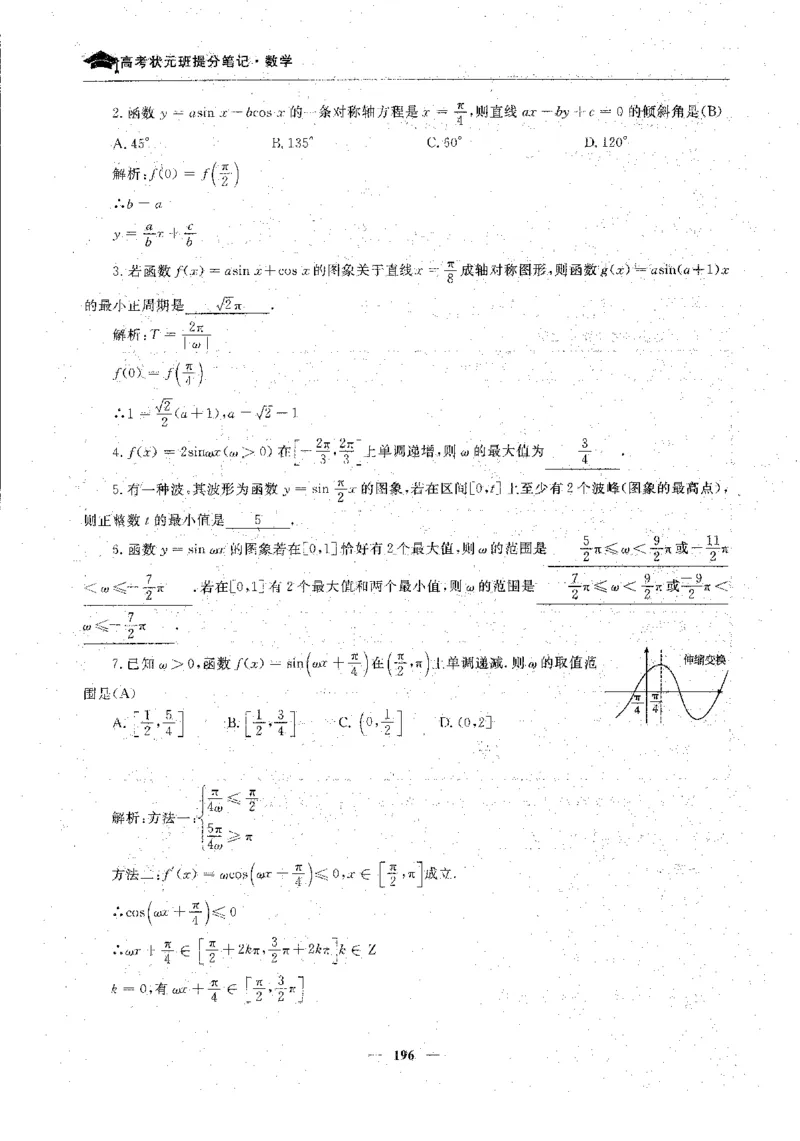 高考状元班提分笔记·数学
2. 函数 y = asin x - bcos x 的一条对称轴方程是 x = π/4,则直线 ax - by + c = 0 的倾斜角是(B)
A. 45° B. 135° C. 60° D. 120°
解析:f(0) = f(π/2)
∴b = a
y = a/b x + c/b
3. 若函数 f(x) = asin x + cos x 的图象关于直线 x = π/8 成轴对称图形,则函数 g(x) = asin(a+1)x
的最小正周期是 √2π .
解析:T = 2π/|ω|
f(0) = f(π/4)
∴1 = √2/2(a+1),a = √2 - 1
4. f(x) = 2sinωx(ω > 0) 在[-2π/3, 2π/3]上单调递增,则 ω 的最大值为 3/4 .
5. 有一种波,其波形为函数 y = sin π/2 x 的图象,若在区间[0,t]上至少有 2 个波峰(图象的最高点),
则正整数 t 的最小值是 5 .
6. 函数 y = sin ωx 的图象若在[0,1]恰好有 2 个最大值,则 ω 的范围是 5/2π ≤ ω < 9/2π 或 -11/2π
< ω ≤ -7/2π .若在[0,1]有 2 个最大值和两个最小值,则 ω 的范围是 7/2π ≤ ω < 9/2π 或 -9/2π <
ω ≤ -7/2π .
7. 已知 ω > 0,函数 f(x) = sin(ωx + π/4)在(π/2, π)上单调递减.则 ω 的取值范
伸缩变换
围是(A)
π/4 π/4
A. [1/2, 5/4] B. [1/2, 3/4] C. (0, 1/2] D. (0,2]
解析:方法一:{π/4ω ≤ π/2
5π/4ω ≥ π
方法二:f′(x) = ωcos(ωx + π/4) ≤ 0,x ∈ [π/2, π]成立.
∴cos(ωx + π/4) ≤ 0
∴ωx + π/4 ∈ [π/2 + 2kπ, 3/2π + 2kπ]k ∈ Z
k = 0,有 ωx + π/4 ∈ [π/2, 3/2π]
— 196 —